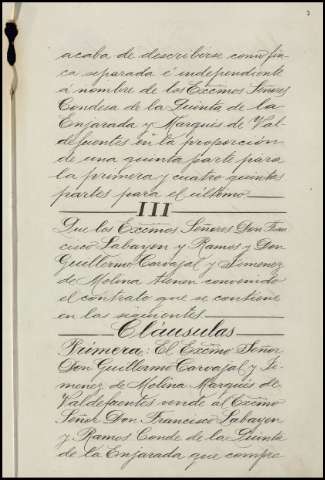 acaba de describirse como fin-
ca separada é independiente
á nombre de los Excmos Señores
Condesa de la Quinta de la
Enjarada y Marqués de Val-
defuentes en la proporción
de una quinta parte para
la primera y cuatro quintas
partes para el último
III
Que los Excmos Señores Don Fran-
cisco Labayen y Ramos y Don
Guillermo Carvajal y Jimenez
de Molina tienen convenido
el contrato que se contiene
en las siguientes
Cláusulas
Primera: El Excmo Señor
Don Guillermo Carvajal y Ji-
menez de Molina Marqués de
Valdefuentes vende al Excmo
Señor Don Francisco Labayen
y Ramos Conde de la Quinta
de la Enjarada que compra